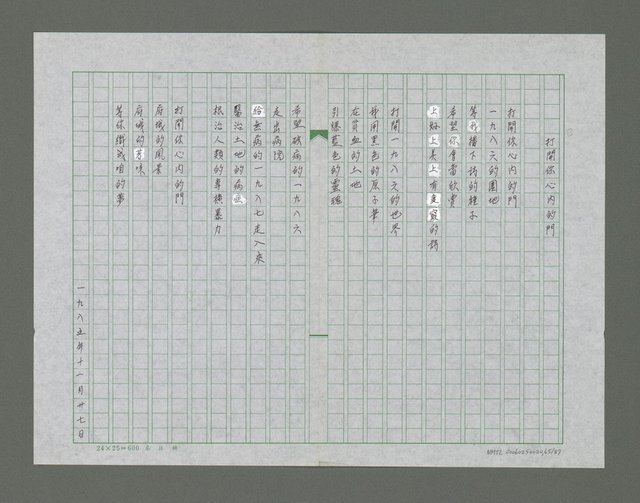 打開你心內的門
打開你心內的門
一九八六的園地
等我播下詩的種子
希望你會當欣賞
上婧上美上有意義的詩
打開一九八六的世界
我用黑色的原子筆
在貧血的土地
引爆藍色的靈魂
希望破病的一九八六
走出病院
給無病的一九八七走入來
醫治土地的病症
根治人類的專橫暴力
打開你心內的門
府城的風景
府城的芳味
等你織咱的夢
一九八五年十一月廿七日
24×25=600
NMTL